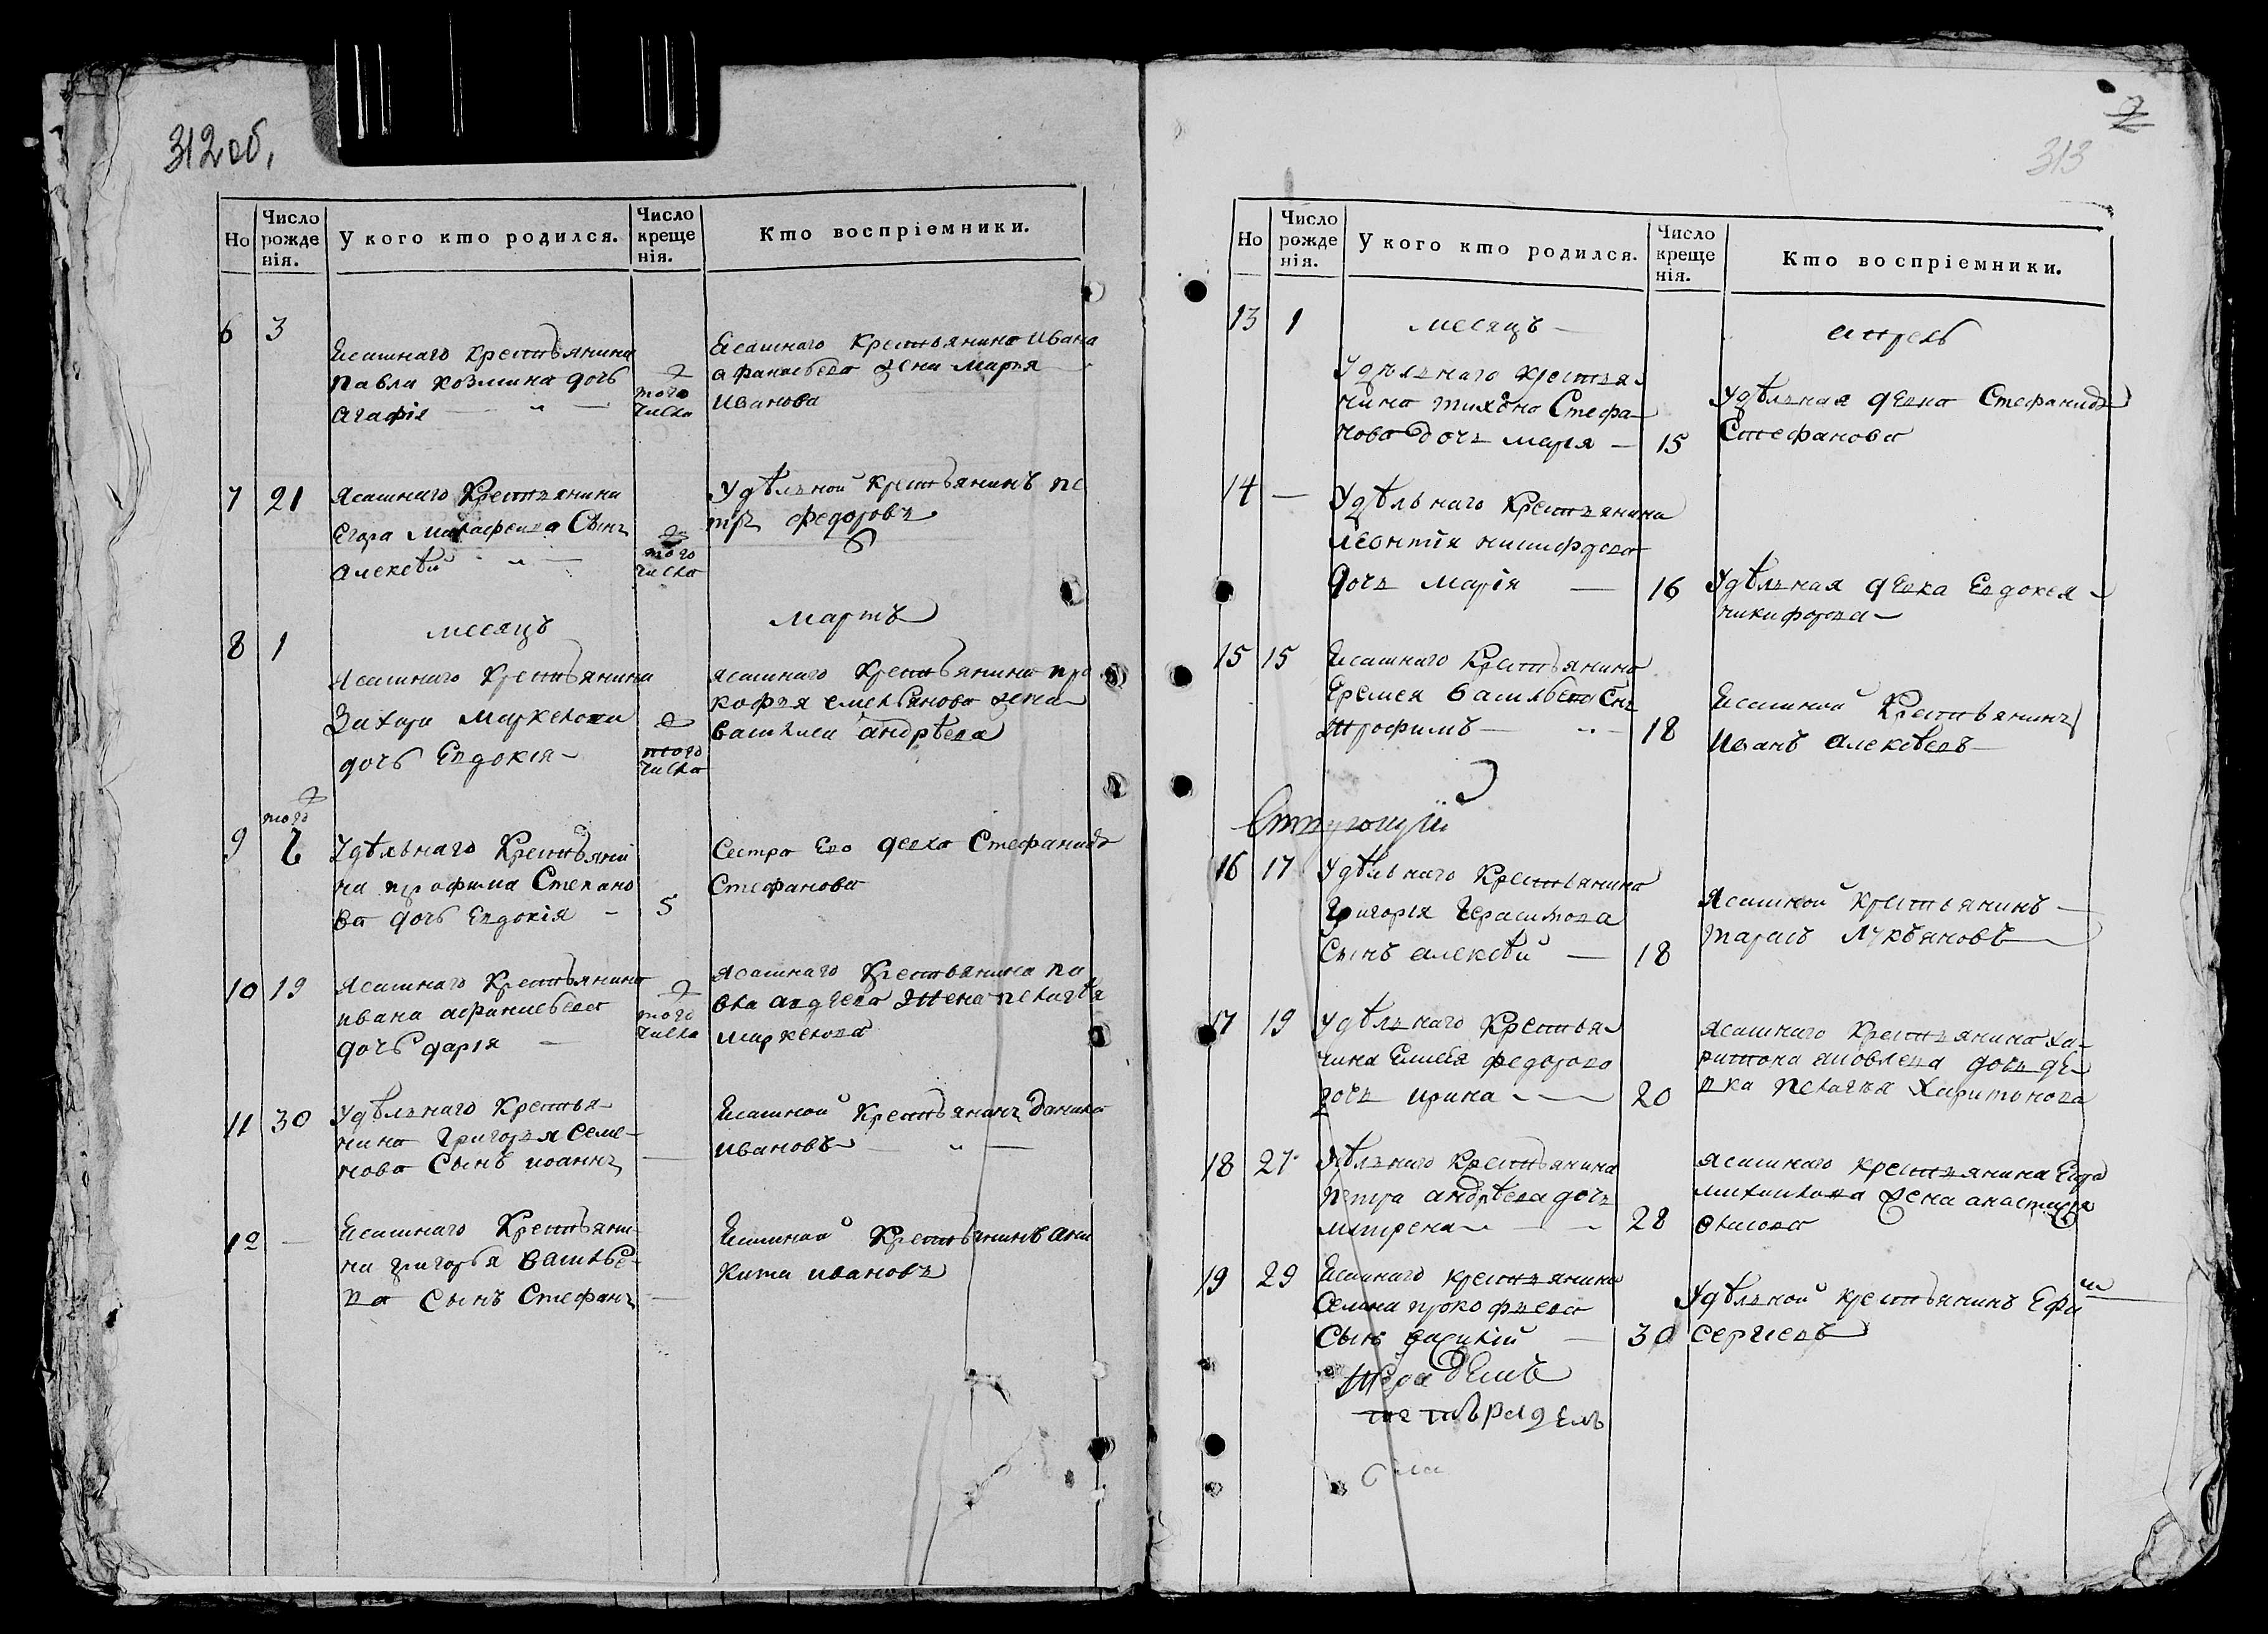 312 об.
Но
Число рожденія.
У кого кто родился.
Число крещенія.
Кто воспріемники.
6 3
Ясашнаго крестьянина
Павла Козмина дочь
Агафія
того
числа
Ясашнаго крестьянина Ивана
Афанасьева жена Марья
Иванова
7 21
Ясашнаго крестьянина
Егора сынъ
Алексѣй
того
числа
Удѣльной крестьянинъ Пе
тръ Федоровъ
месяцъ мартъ
8 1
Ясашнаго крестьянина
Захара Маркелова
дочь Евдокія
того
числа
ясашнаго крестьянина Про
кофья Емельянова жена
Василиса Андрѣева
9 того
Удѣльнаго крестьяни
на Трофима Степано
ва дочь Евдокія
5
Сестра Его девка Стефанида
Стефанова
10 19
Ясашнаго крестьянина
Ивана Афанасьева
дочь Дарія
того
числа
Ясашнаго крестьянина Па
вла Авдеева жена Пелагѣя
Маркелова
11 30
Удѣльнаго крестья
нина Григорья Семе-
нова сынъ Иоаннъ
Ясашной крестьянинъ Данила
Ивановъ
12 —
Ясашнаго крестьяни-
на Григорья Василье-
ва сынъ Стефанъ
Ясашной крестьянинъ Ани
кита Ивановъ
2
313
Но
Число рожденія.
У кого кто родился.
Число крещенія.
Кто воспріемники.
13 1
месяцъ апрель
Удѣльнаго крестья-
нина Тихона Стефа
нова дочь Марія
15
Удѣльная девка Стефанида
Стефанова
14 —
Удѣльнаго крестьянина
Леонтія Никифорова
дочь Марія
16
Удѣльная девка Евдокея
Никифорова
15 15
Ясашнаго крестьянина
Еремея Васильева сынъ
Трофимъ
18
Ясашной крестьянинъ
Иванъ Алексѣевъ
16 17
Удѣльнаго крестьянина
Григорія Герасимова
сынъ Алексѣй
18
Ясашной крестьянинъ
Тарасъ Лукьяновъ
17 19
Удѣльнаго крестья-
нина Елисѣя Федорова
дочь Ирина
20
Ясашнаго крестьянина Ха-
ритона Яковлева дочь де-
вка Пелагѣя Харитонова
18 27
Удѣльнаго крестьянина
Петра Андрѣева дочь
Матрена
28
Ясашнаго крестьянина Егора
Михайлова жена Анастасія
19 29
Ясашнаго крестьянина
Семена Прокофьева
сынъ Василій
30
Удѣльной крестьянинъ Ефим
Сергеевъ